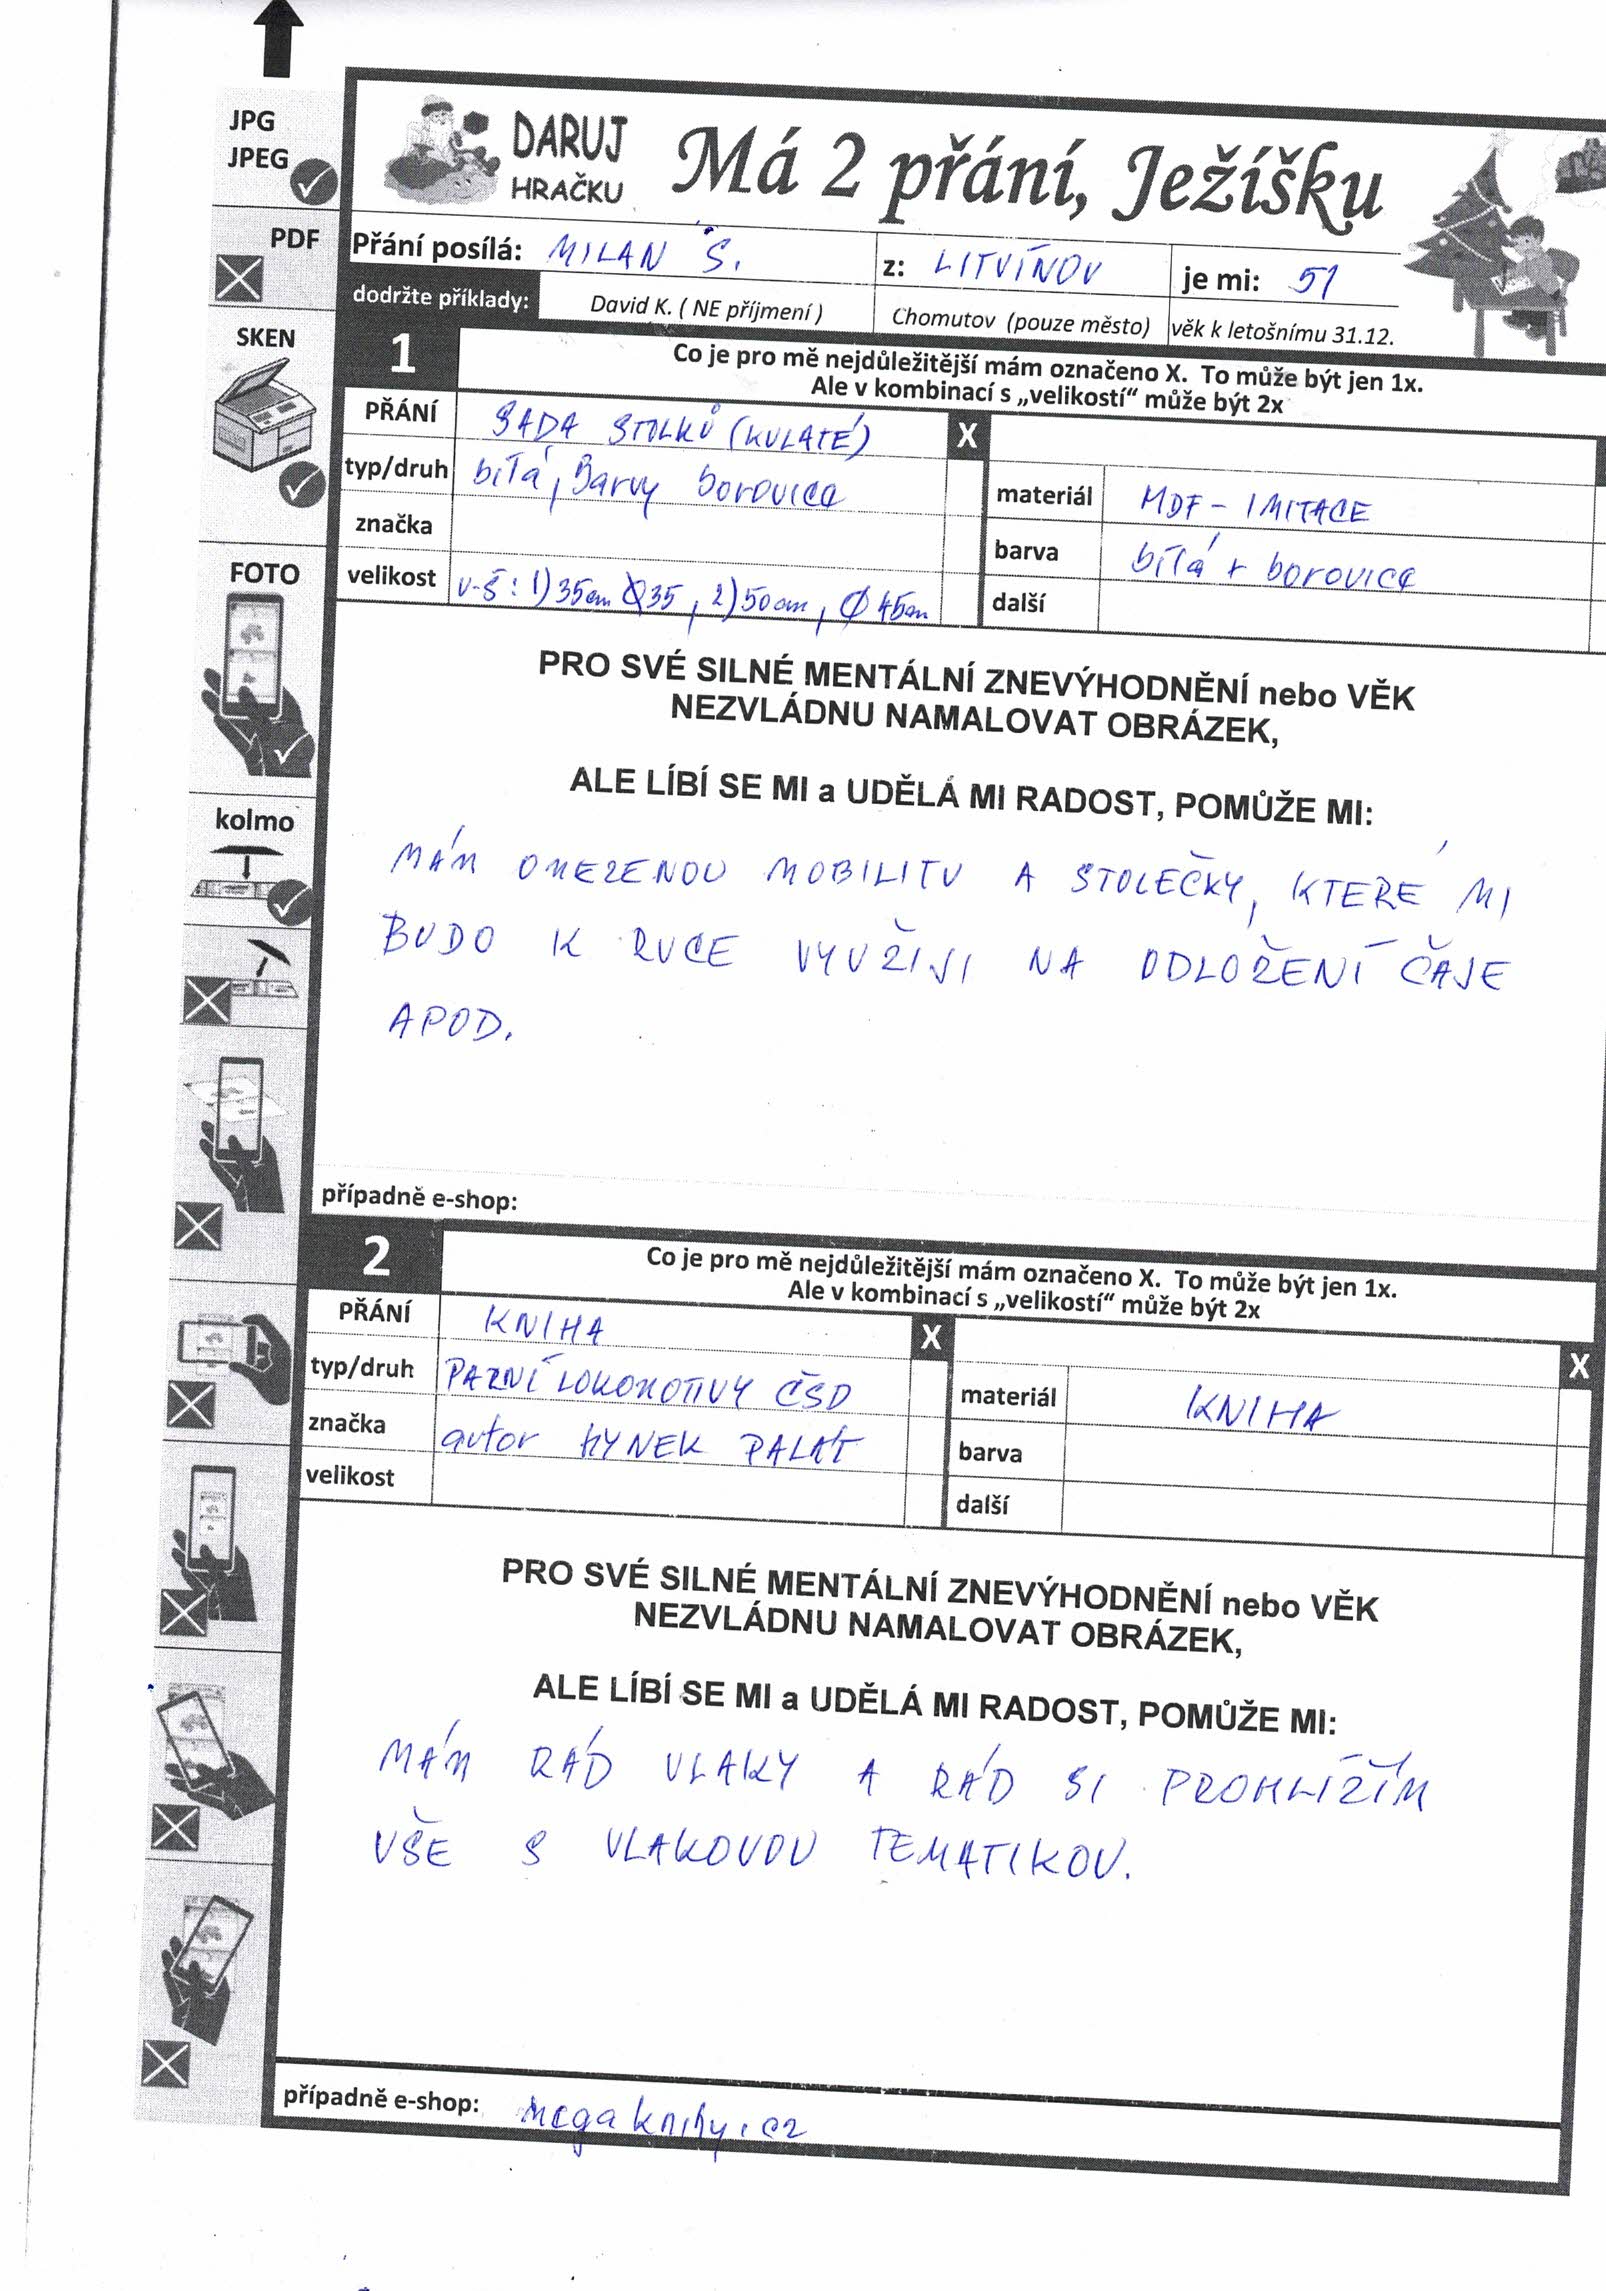 JPG
JPEG
DARUJ
HRAČKU
Má 2 přání, Ježíšku
PDF
Přání posílá: MILAN Š. z: LITVÍNOV je mi: 51
dodržte příklady: David K. ( NE příjmení ) Chomutov (pouze město) věk k letošnímu 31.12.
SKEN
1
Co je pro mě nejdůležitější mám označeno X. To může být jen 1x.
Ale v kombinací s „velikostí“ může být 2x
PŘÁNÍ SADA STOLKŮ (KULATÉ) X
typ/druh bílá, Barvy borovice materiál MDF - IMITACE
značka barva bílá + borovice
velikost v-š: 1) 35cm Ø35, 2) 50cm, Ø 45cm další
FOTO
PRO SVÉ SILNÉ MENTÁLNÍ ZNEVÝHODNĚNÍ nebo VĚK
NEZVLÁDNU NAMALOVAT OBRÁZEK,
ALE LÍBÍ SE MI a UDĚLÁ MI RADOST, POMŮŽE MI:
kolmo
MÁM OMEZENOU MOBILITU A STOLEČKY, KTERÉ MI
BUDO K RUCE VYUŽIJI NA ODLOŽENÍ ČAJE
APOD.
případně e-shop:
2
Co je pro mě nejdůležitější mám označeno X. To může být jen 1x.
Ale v kombinací s „velikostí“ může být 2x
PŘÁNÍ KNIHA X X
typ/druh PARNÍ LOKOMOTIVY ČSD materiál KNIHA
značka autor HYNEK PALÁT barva
velikost další
PRO SVÉ SILNÉ MENTÁLNÍ ZNEVÝHODNĚNÍ nebo VĚK
NEZVLÁDNU NAMALOVAT OBRÁZEK,
ALE LÍBÍ SE MI a UDĚLÁ MI RADOST, POMŮŽE MI:
MÁM RÁD VLAKY A RÁD SI PROHLÍŽÍM
VŠE S VLAKOVOU TEMATIKOU.
případně e-shop: megaknihy.cz